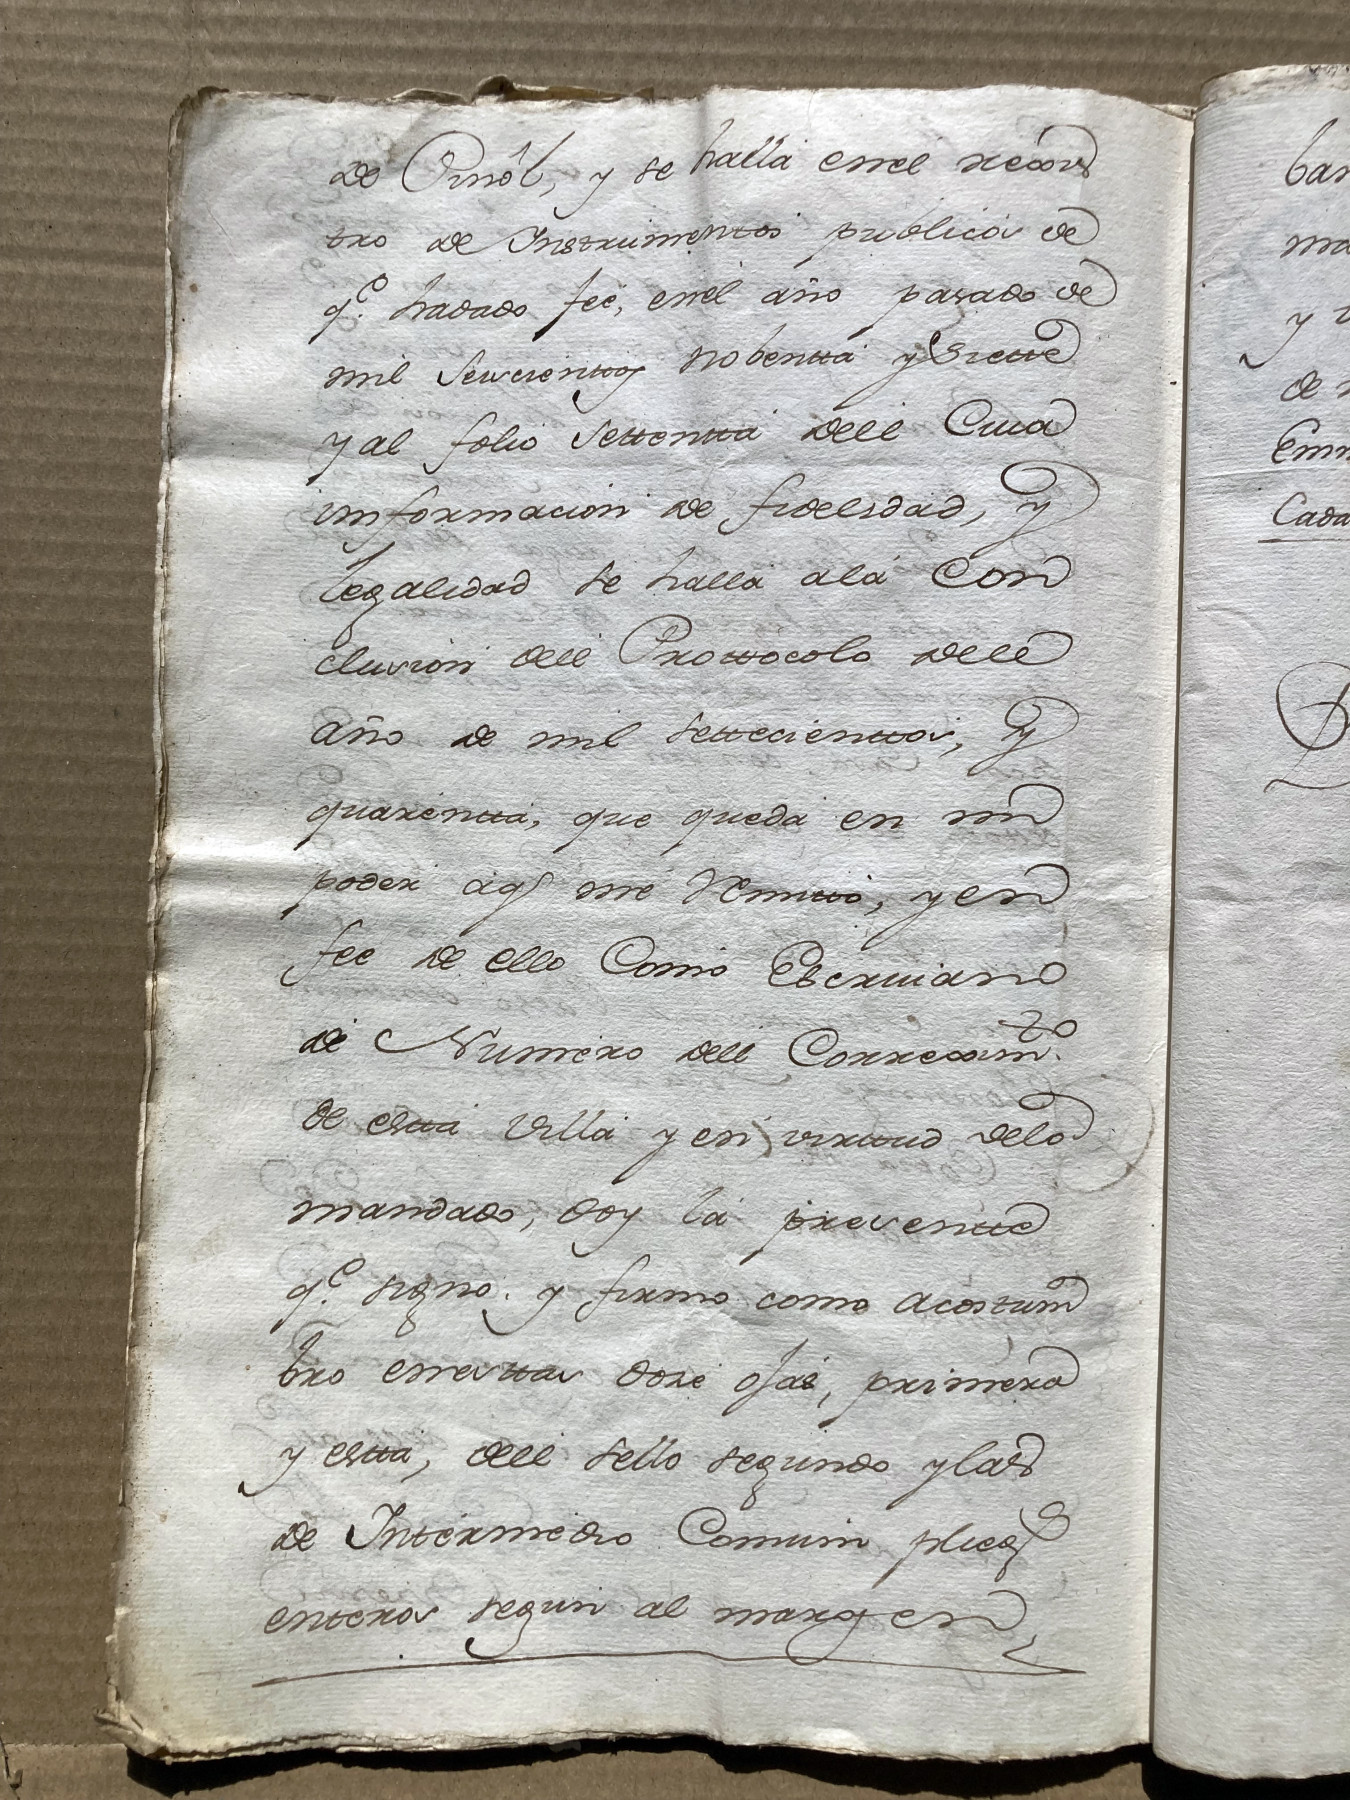 de Orñôl, y se halla enel rexis
tro de Instrumentos publicos de
q.e hadado feé, enel año pasado de
mil seiscientos nobentta y Siette
y al folio settentta dell Cuia
informacion de fidelidad, y
legalidad se halla ala Con
clusion dell Prottocolo dell
año de mil settecienttos, y
quarentta, que queda en mi
poder aq.n me remitto, y en
feé de ello Como Escriuiano
de Numero dell Correxim.to
de estta Villa y en virttud delo
mandado, doy la presentte
q.e signo. y firmo como acostum
bro enesttas doze ojas, primera
y estta, dell sello segundo y las
de Intermedio Comun plieg.s
enteros segun al margen
bar
ma
y v
de
Cada